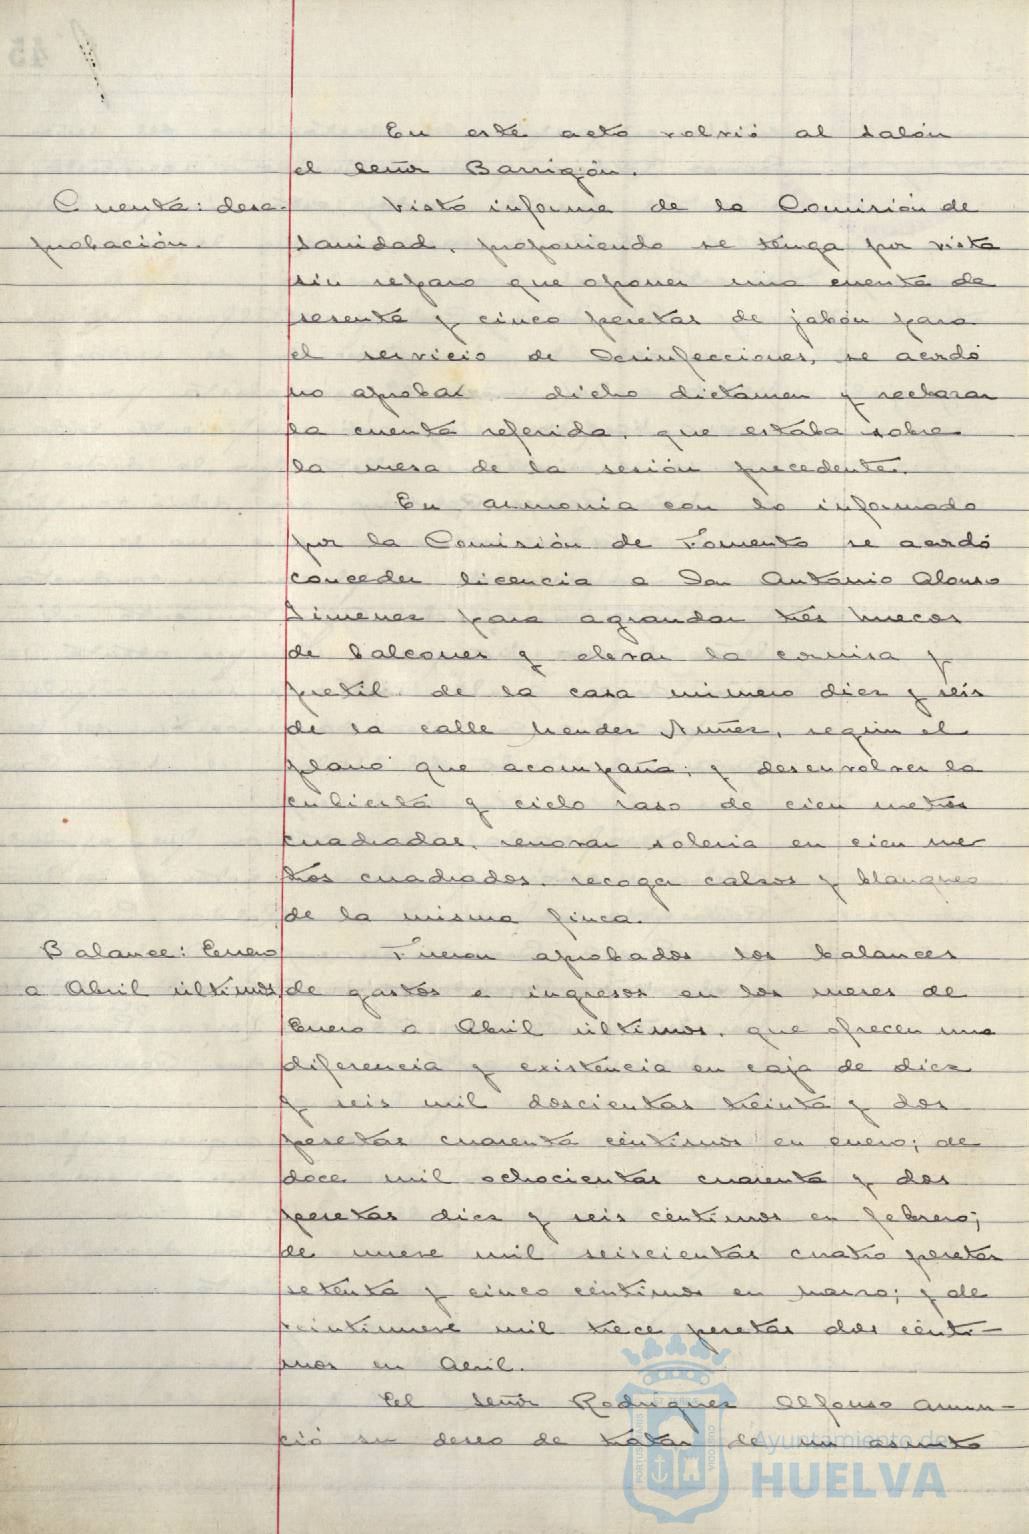 En este acto volvió al salón
el señor Barrigón.
Cuenta: desa-
probación.
Visto informe de la Comisión de
Sanidad, proponiendo se tenga por vista
sin reparo que oponer una cuenta de
sesenta y cinco pesetas de jabón para
el servicio de Desinfecciones, se acordó
no aprobar dicho dictamen y rechazar
la cuenta referida, que estaba sobre
la mesa de la sesión precedente.
En armonia con lo informado
por la Comisión de Fomento se acordó
conceder licencia a Don Antonio Alonso
Jimenez para agrandar tres huecos
de balcones y elevar la cornisa y
pretil de la casa número diez y seis
de la calle Mendez Nuñez, según el
plano que acompaña; y desenvolver la
cubierta y cielo raso de cien metros
cuadrados, renovar soleria en cien me
tros cuadrados, recoger calzos y blanqueo
de la misma finca.
Balance: Enero
a Abril últimos
Fueron aprobados los balances
de gastos e ingresos en los meses de
Enero a Abril últimos, que ofrecen una
diferencia y existencia en caja de diez
y seis mil doscientas treinta y dos
pesetas cuarenta céntimos en enero; de
doce mil ochocientas cuarenta y dos
pesetas diez y seis céntimos en febrero;
de nueve mil seiscientas cuatro pesetas
setenta y cinco céntimos en marzo; y de
veintinueve mil trece pesetas dos cénti-
mos en Abril.
El señor Rodriguez Alfonso anun-
ció su deseo de tratar de un asunto
Ayuntamiento de
HUELVA